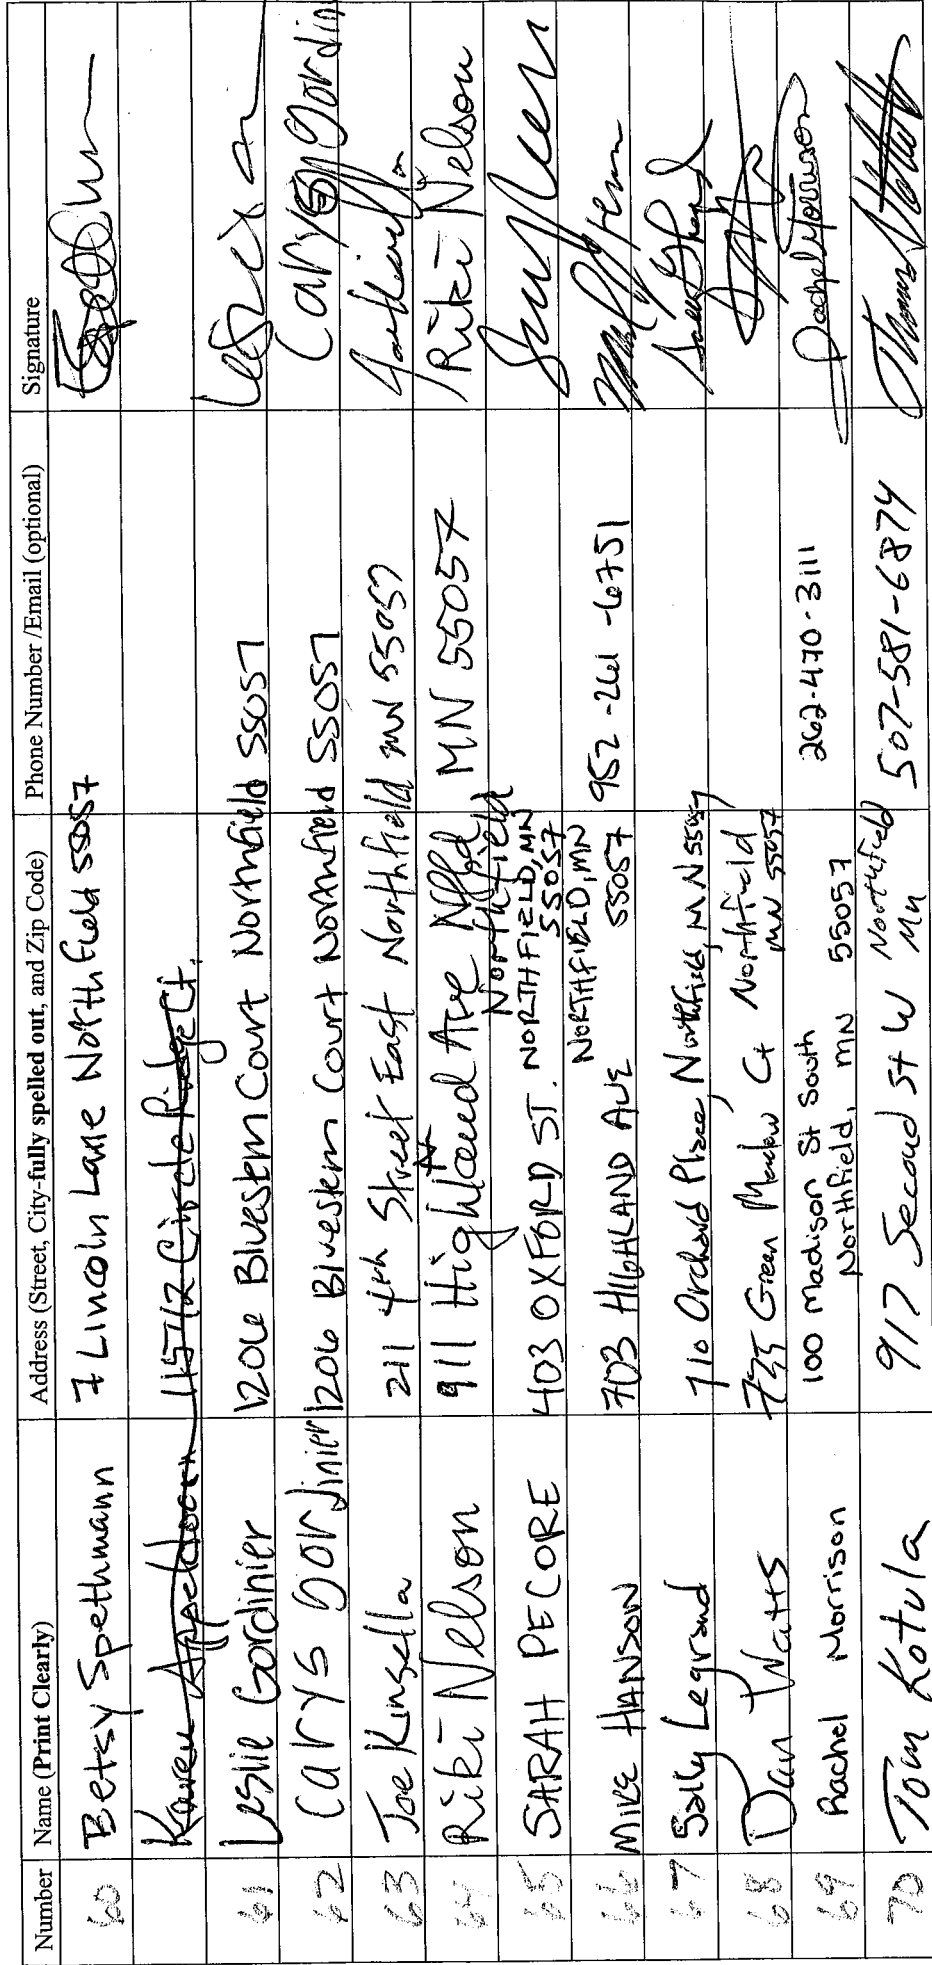 Number Name (Print Clearly) Address (Street, City-fully spelled out, and Zip Code) Phone Number /Email (optional) Signature
60 Betsy Spethmann 7 Lincoln Lane Northfield 55057
Karen Appeldoorn 11572 Circle Ridge Ct.
61 Leslie Gordinier 1206 Bluestem Court Northfield 55057
62 Carys Gordinier 1206 Bluestem Court Northfield 55057 Carys Gordin
63 Joe Kinsella 211 4th Street East Northfield MN 55057
64 Riki Nelson 911 Highland Ave N Nfld MN 55057 Riki Nelson
Northfield
65 SARAH PECORE 403 OXFORD ST. NORTHFIELD, MN
55057
66 MIKE HANSON 703 HIGHLAND AVE NORTHFIELD, MN 55057 952-261-6751
67 Sally Legrand 710 Orchard Place, Northfield, MN 55057
68 Dan Watts 725 Green Meadow Ct Northfield
MN 55057
69 Rachel Morrison 100 Madison St South 262-470-3111 Rachel Morrison
Northfield, MN 55057
70 Tom Kotula 917 Second St W Northfield 507-581-6874
Mn